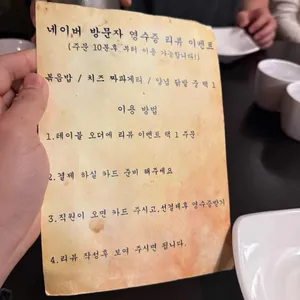 네이버 방문자 영수증 리뷰 이벤트
(주문 10분후 부터 이용 가능합니다!)
볶음밥 / 치즈 짜파게티 / 양념 닭발 중 택 1
이용 방법
1.테이블 오더에 리뷰 이벤트 택 1 주문
2.결제 하실 카드 준비 해주세요
3.직원이 오면 카드 주시고,선결제후 영수증받기
4.리뷰 작성후 보여 주시면 됩니다.